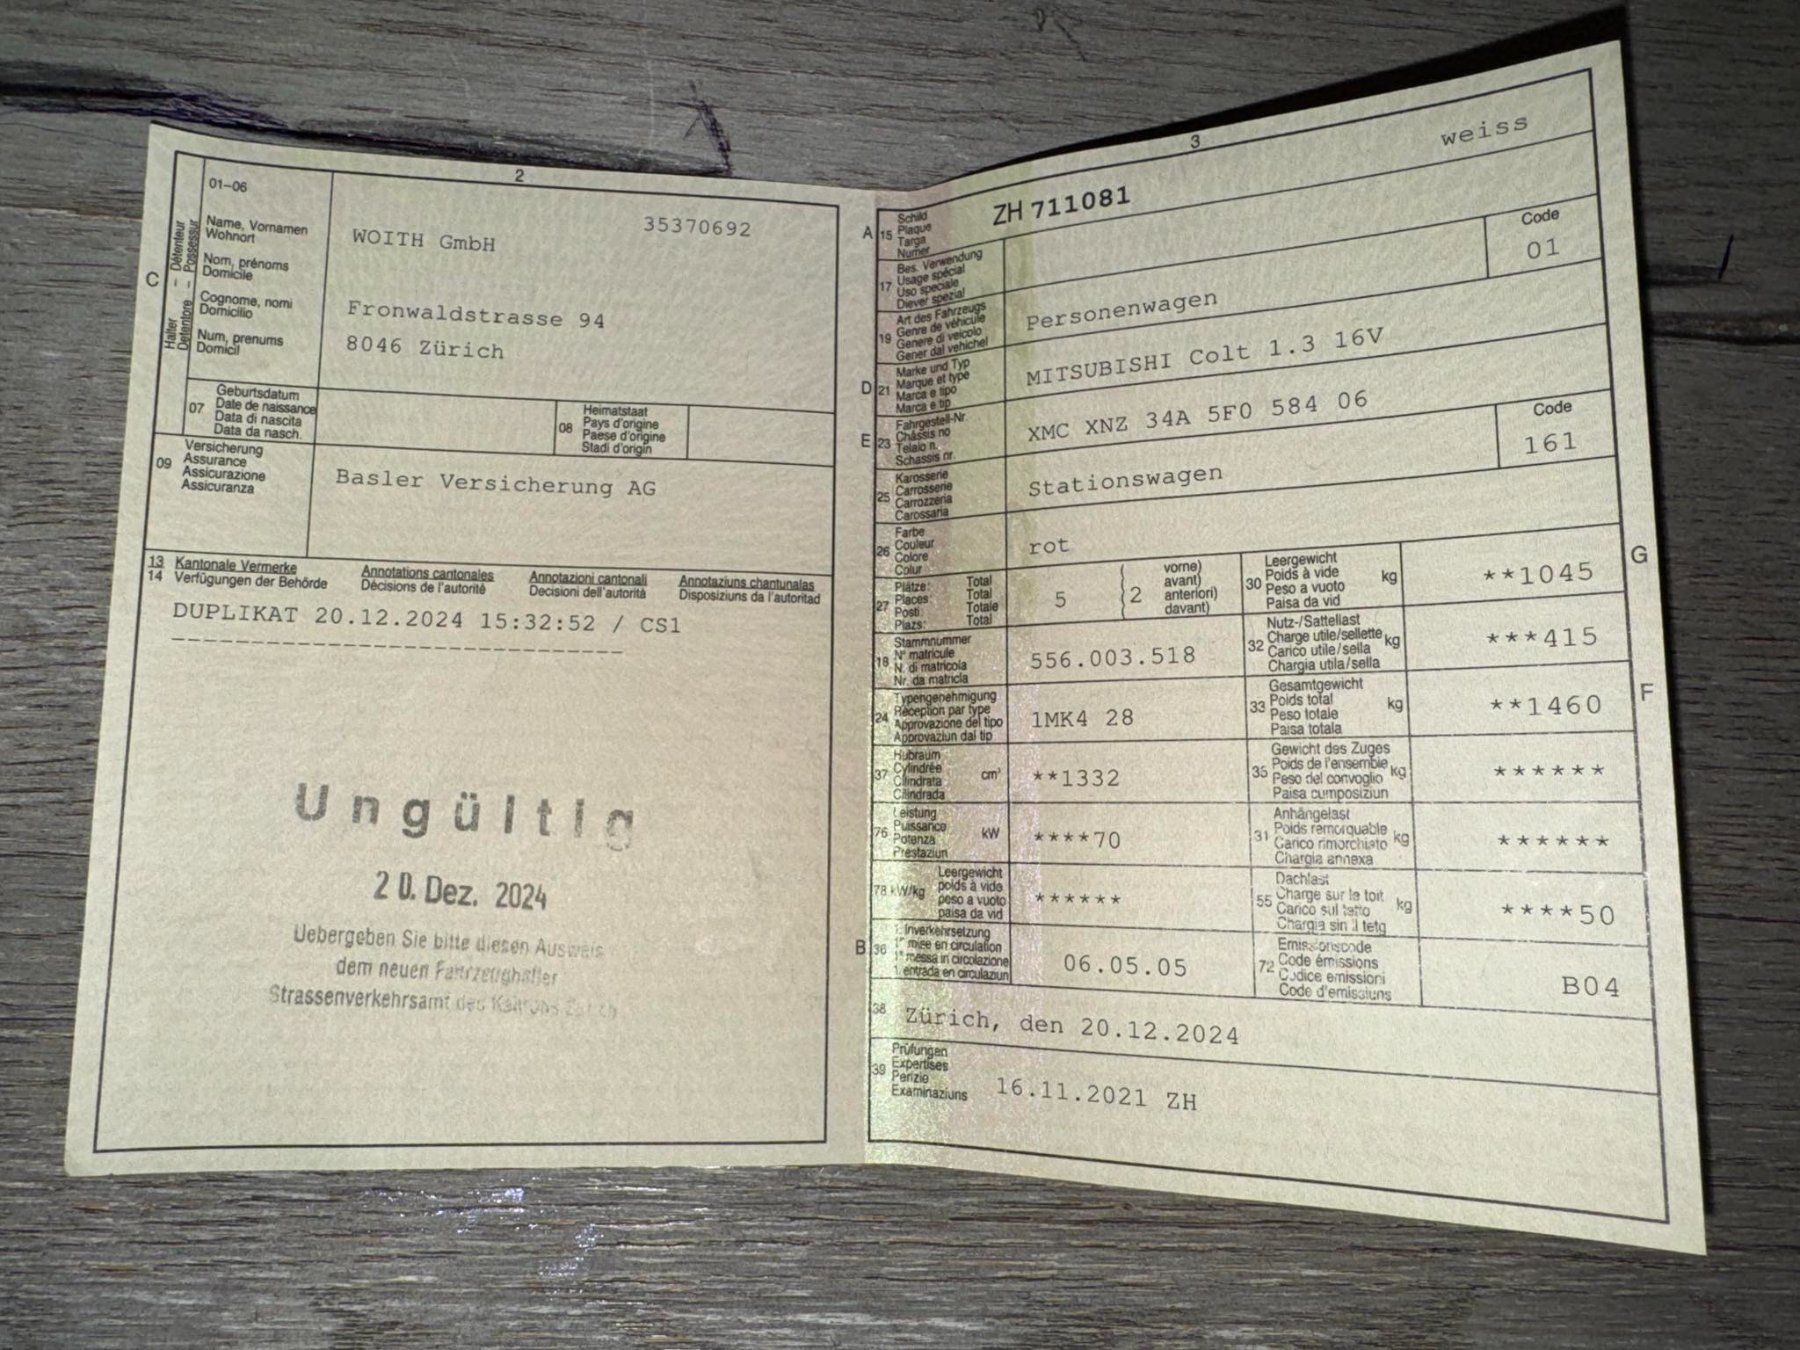 2
01-06
Halter - Détenteur
Detentore - Possessur
C
Name, Vornamen
Wohnort
Nom, prénoms
Domicile
Cognome, nomi
Domicilio
Num, prenums
Domicil
35370692
WOITH GmbH
Fronwaldstrasse 94
8046 Zürich
07
Geburtsdatum
Date de naissance
Data di nascita
Data da nasch.
08
Heimatstaat
Pays d'origine
Paese d'origine
Stadi d'origin
09
Versicherung
Assurance
Assicurazione
Assicuranza
Basler Versicherung AG
13 Kantonale Vermerke Annotations cantonales Annotazioni cantonali Annotaziuns chantunalas
14 Verfügungen der Behörde Décisions de l'autorité Decisioni dell'autorità Disposiziuns da l'autoritad
DUPLIKAT 20.12.2024 15:32:52 / CS1
------------------------------------
Ungültig
20. Dez. 2024
Uebergeben Sie bitte diesen Ausweis
dem neuen Fahrzeughalter
Strassenverkehrsamt des Kantons Zürich
3
weiss
A
15
Schild
Plaque
Targa
Numer
ZH 711081
17
Bes. Verwendung
Usage spécial
Uso speciale
Diever spezial
Code
01
19
Art des Fahrzeugs
Genre de véhicule
Genere di veicolo
Gener dal vehichel
Personenwagen
D
21
Marke und Typ
Marque et type
Marca e tipo
Marca e tip
MITSUBISHI Colt 1.3 16V
E
23
Fahrgestell-Nr.
Châssis no
Telaio n.
Schassis nr.
XMC XNZ 34A 5F0 584 06
25
Karosserie
Carrosserie
Carrozzeria
Carossaria
Stationswagen
Code
161
26
Farbe
Couleur
Colore
Colur
rot
27
Plätze: Total
Places: Total
Posti: Totale
Plazs: Total
5
2
vorne)
avant)
anteriori)
davant)
30
Leergewicht
Poids à vide
Peso a vuoto
Paisa da vid
kg
**1045
G
18
Stammnummer
N° matricule
N. di matricola
Nr. da matricla
556.003.518
32
Nutz-/Sattellast
Charge utile/sellette
Carico utile/sella
Chargia utila/sella
kg
***415
24
Typengenehmigung
Réception par type
Approvazione del tipo
Approvaziun dal tip
1MK4 28
33
Gesamtgewicht
Poids total
Peso totale
Paisa totala
kg
**1460
F
37
Hubraum
Cylindrée
Cilindrata
Cilindrada
cm³
**1332
35
Gewicht des Zuges
Poids de l'ensemble
Peso del convoglio
Paisa cumposiziun
kg
******
76
Leistung
Puissance
Potenza
Prestaziun
kW
****70
31
Anhängelast
Poids remorquable
Carico rimorchiato
Chargia annexa
kg
******
78 kW/kg
Leergewicht
poids à vide
peso a vuoto
paisa da vid
******
55
Dachlast
Charge sur le toit
Carico sul tetto
Chargia sin il tetg
kg
****50
B
36
1. Inverkehrsetzung
1re mise en circulation
1a messa in circolazione
1. entrada en circulaziun
06.05.05
72
Emissionscode
Code émissions
Codice emissioni
Code d'emissiuns
B04
38
Zürich, den 20.12.2024
39
Prüfungen
Expertises
Perizie
Examinaziuns
16.11.2021 ZH